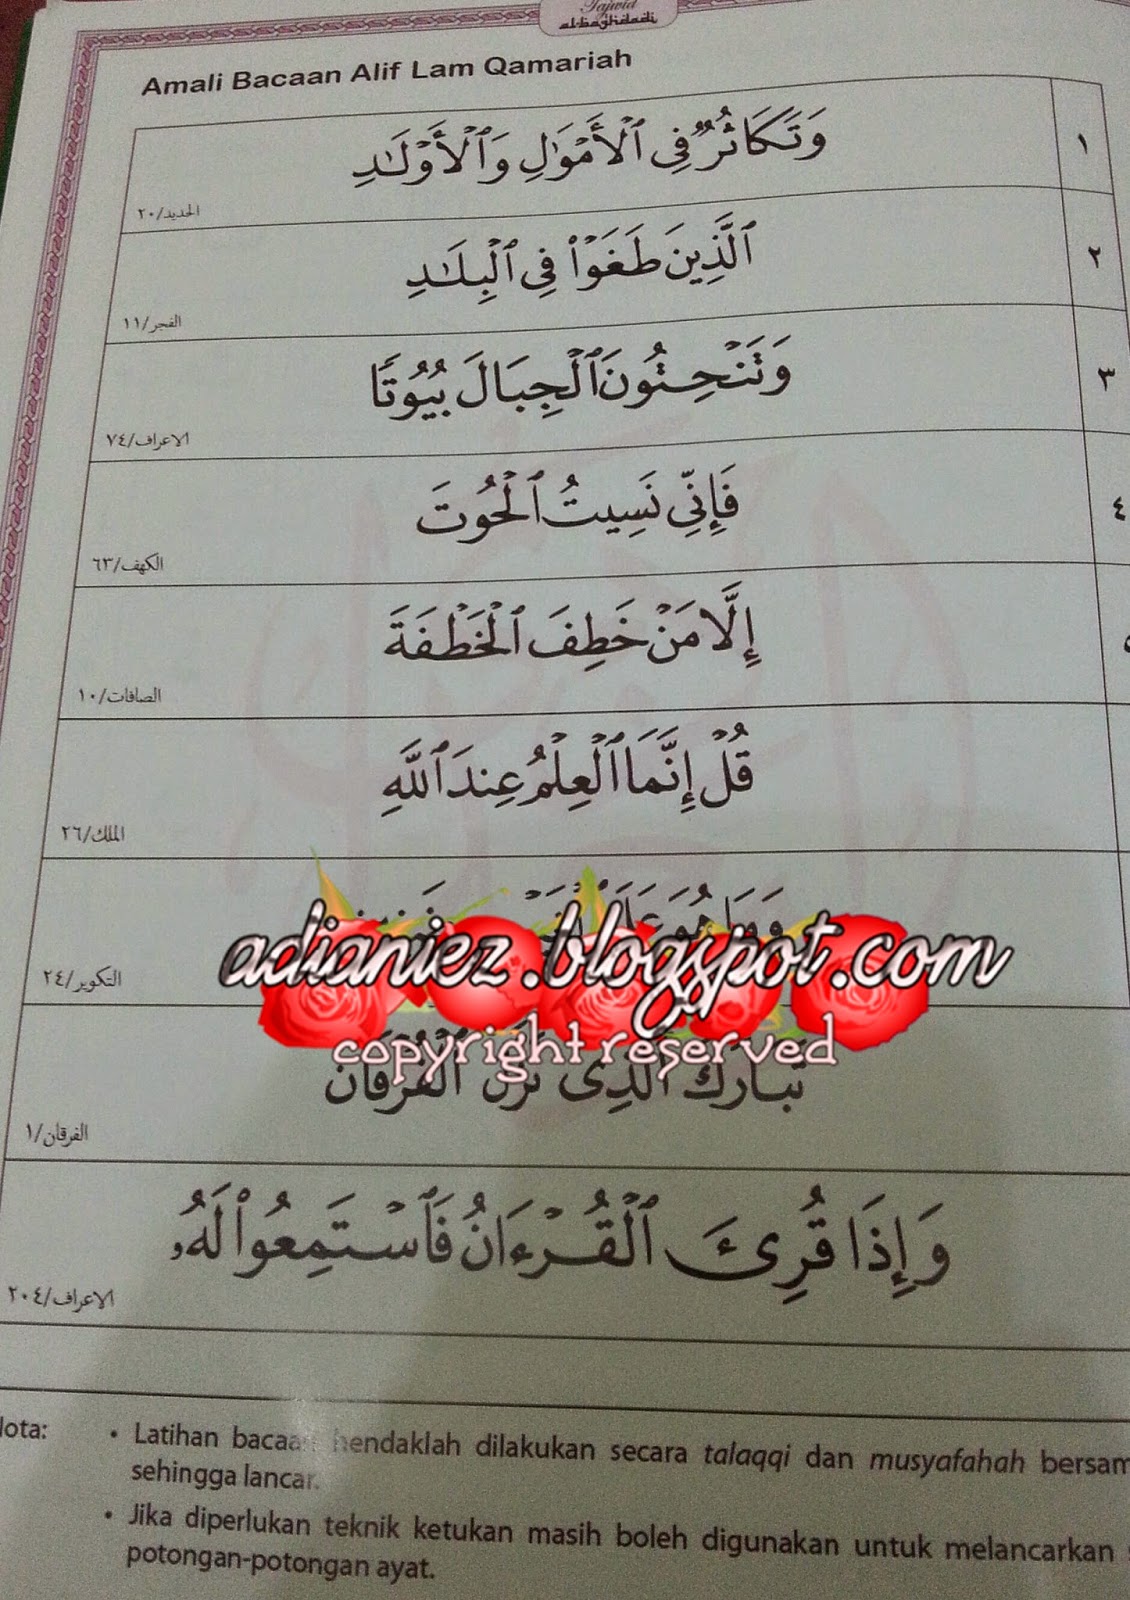 Tajwid
al-baghdadi
Amali Bacaan Alif Lam Qamariah
١
وَتَكَاثُرٌ فِى ٱلْأَمْوَٰلِ وَٱلْأَوْلَـٰدِ
الحديد/٢٠
٢
ٱلَّذِينَ طَغَوْا۟ فِى ٱلْبِلَـٰدِ
الفجر/١١
٣
وَتَنْحِتُونَ ٱلْجِبَالَ بُيُوتًا
الاعراف/٧٤
٤
فَإِنِّى نَسِيتُ ٱلْحُوتَ
الكهف/٦٣
إِلَّا مَنْ خَطِفَ ٱلْخَطْفَةَ
الصافات/١٠
قُلْ إِنَّمَا ٱلْعِلْمُ عِندَ ٱللَّهِ
الملك/٢٦
وَمَا هُوَ عَلَى
adianiez.blogspot.com
التكوير/٢٤
copyright reserved
تَبَارَكَ ٱلَّذِى نَزَّلَ ٱلْفُرْقَانَ
الفرقان/١
وَإِذَا قُرِئَ ٱلْقُرْءَانُ فَٱسْتَمِعُوا۟ لَهُۥ
الاعراف/٢٠٤
• Latihan bacaan hendaklah dilakukan secara talaqqi dan musyafahah
sehingga lancar.
• Jika diperlukan teknik ketukan masih boleh digunakan untuk melancarkan
potongan-potongan ayat.